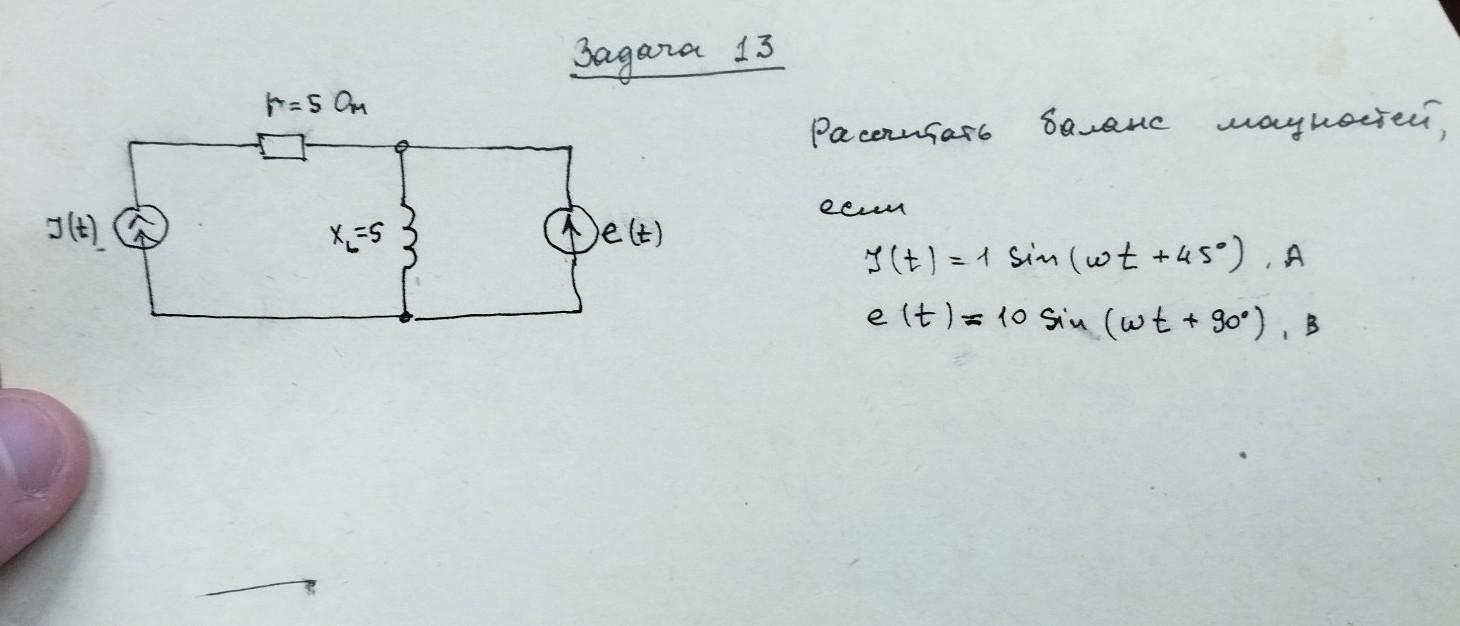 Задача 13
r=5 Ом
Рассчитать баланс мощностей,
если
J(t)
X_L=5
e(t)
J(t) = 1 sin(ωt +45°), А
e(t) = 10 sin(ωt + 90°), В